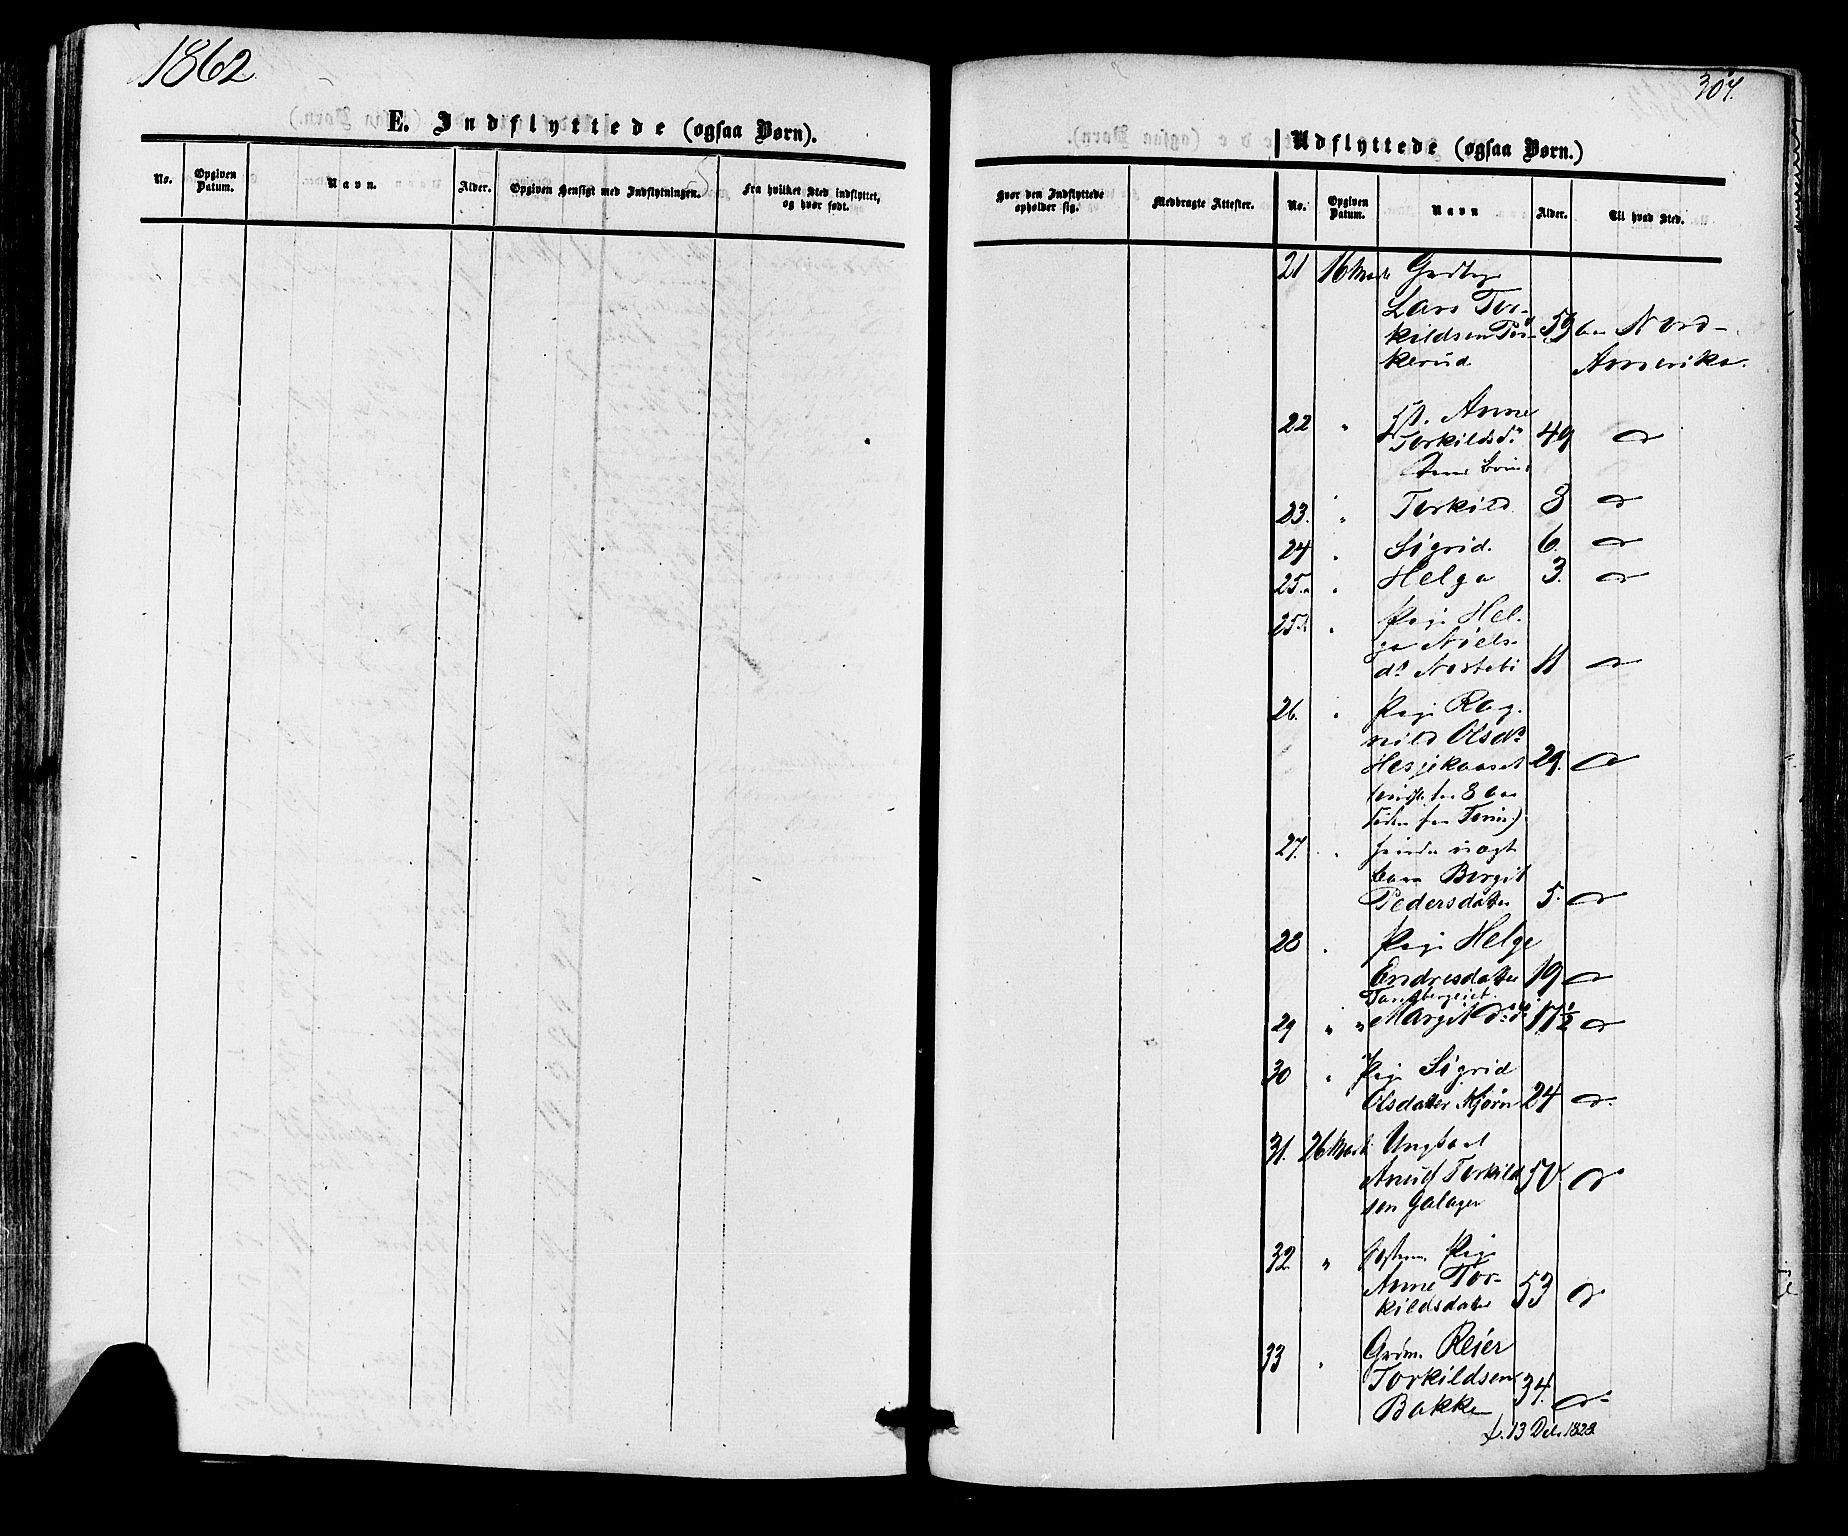 1862
304.
E. Indflyttede (ogsaa Børn).
No.
Opgiven Datum.
Navn.
Alder.
Opgiven Hensigt med Indflytningen.
Fra hvilket Sted indflyttet, og hvor født.
Udflyttede (ogsaa Børn.)
Hvor den Indflyttede opholder sig.
Medbragte Attester.
No.
Opgiven Datum.
Navn
Alder.
Til hvad Sted.
21 16 Marts
Lars Tor-
kildsen 59 Nord-
kerud Amerika.
22 " Anne
Torkildsd. 49 do
23. " Torkild 8 do
24 " Sigrid. 6. do
25.a " Helga 3. do
25.b " Pige Hel-
ga Niels-
dr 11 do
26. " Pige Rag-
nild Olsdr
29. do
27. " uægt
barn Bergit
Pedersdatter 5. do
28 " Pige Helge
Endresdatter 19 do
29 " " Margit do 17½ do
30 " Pige Sigrid
Olsdatter Kjørn 24 do.
31. 26 Marts Ungkarl
Knud Torkild- 50 do
sen
32 " Pige
Anne Tor- 53 do
kildsdatter
33 " Grdm. Reier
Torkildsen 34. do
Bakken
f. 13 Dec. 1828